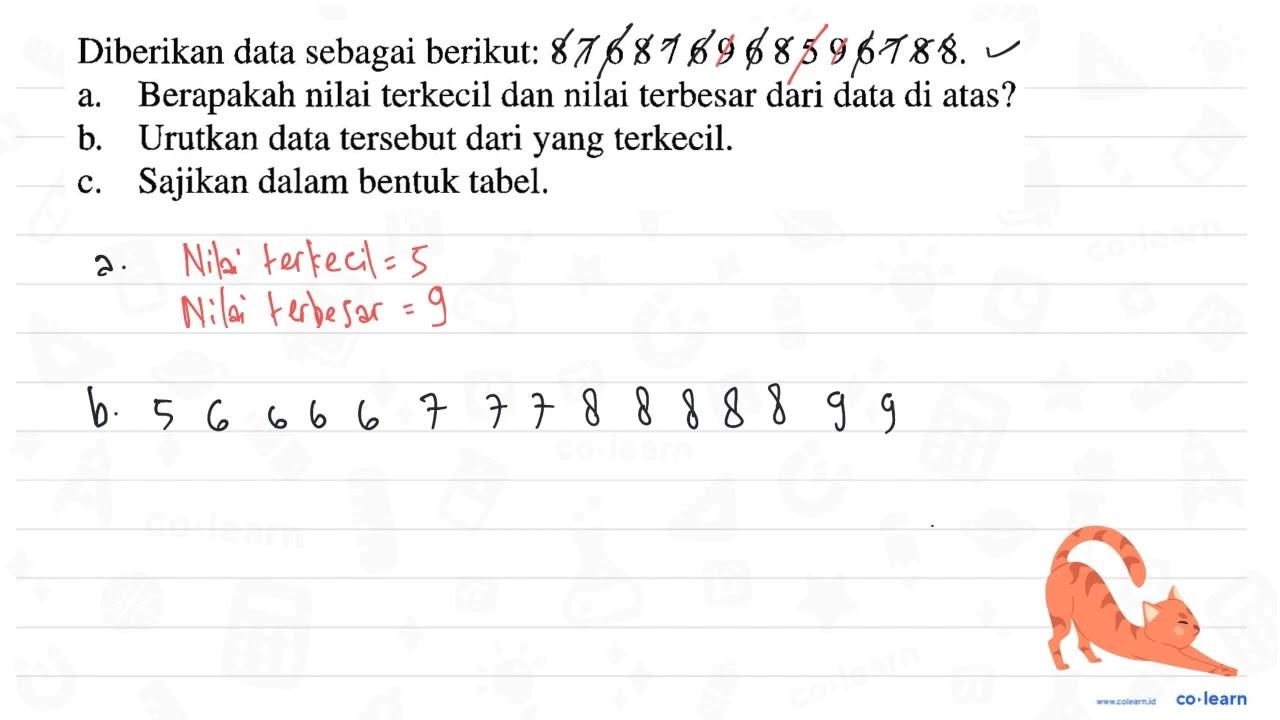 Diberikan data sebagai berikut: 8 7 6 8 7 6 9 6 8 5 9 6 7 8 8.
a. Berapakah nilai terkecil dan nilai terbesar dari data di atas?
b. Urutkan data tersebut dari yang terkecil.
c. Sajikan dalam bentuk tabel.
a. Nilai terkecil = 5
Nilai terbesar = 9
b. 5 6 6 6 6 7 7 7 8 8 8 8 8 9 9
www.colearn.id co·learn